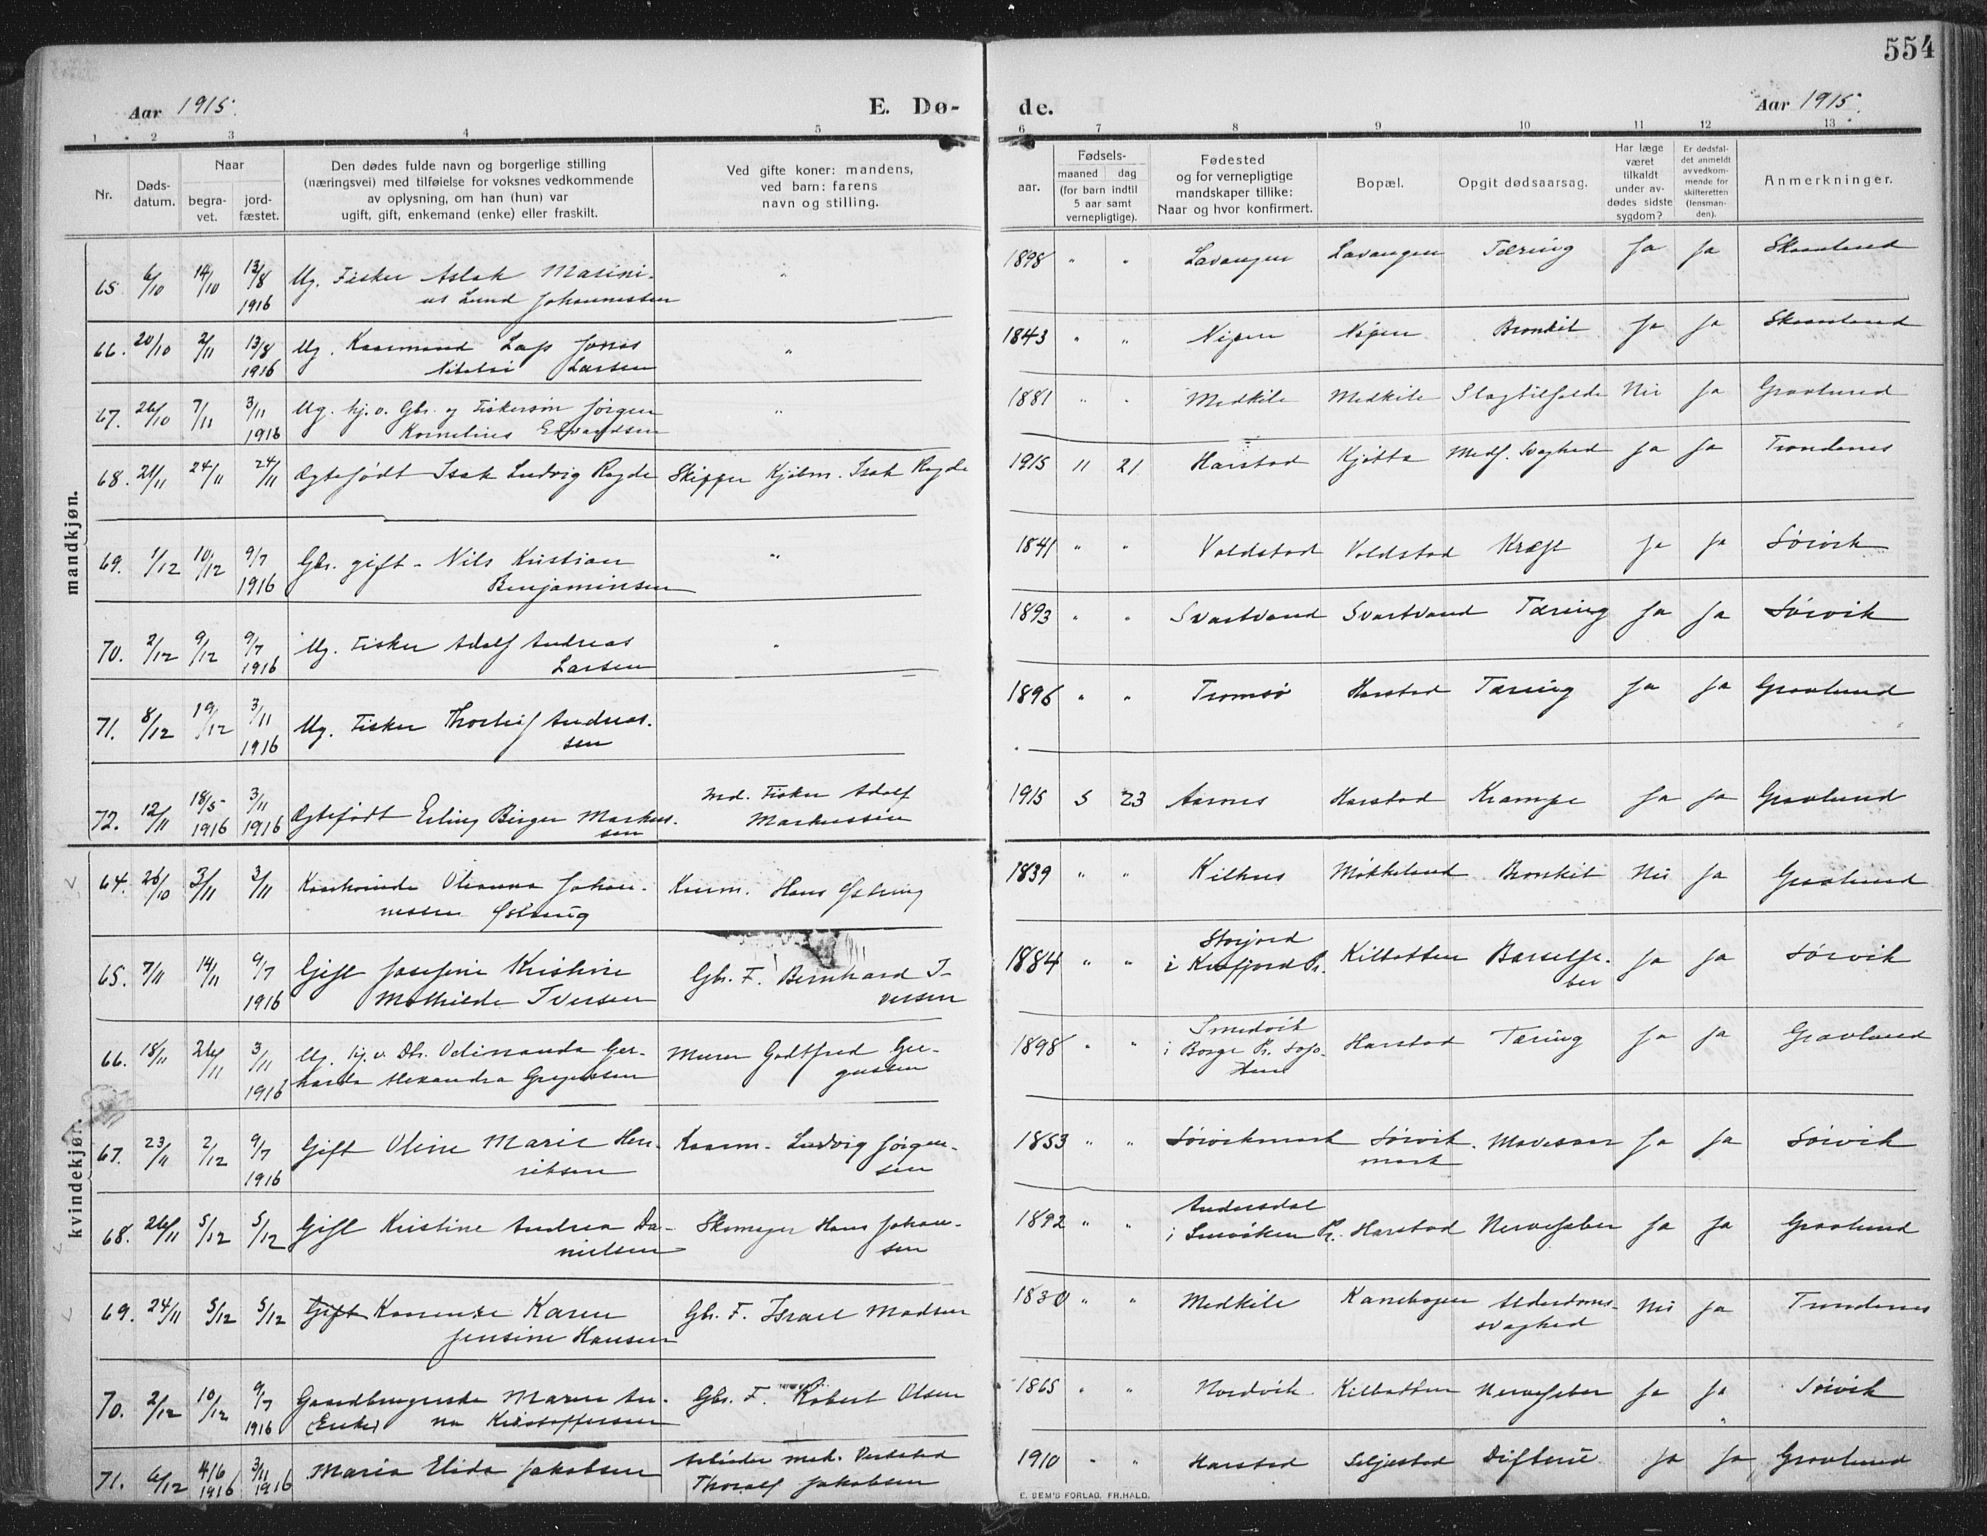 554
Aar 1915.
E. Dø-
de.
Aar 1915.
1 2 3 4 5
6 7 8 9 10 11 12 13
Nr.
Døds-
datum.
Naar
begra-
vet.
jord-
fæstet.
Den dødes fulde navn og borgerlige stilling
(næringsvei) med tilføielse for voksnes vedkommende
av oplysning, om han (hun) var
ugift, gift, enkemand (enke) eller fraskilt.
Ved gifte koner: mandens,
ved barn: farens
navn og stilling.
aar.
Fødsels-
maaned dag
(for barn indtil
5 aar samt
vernepligtige).
Fødested
og for vernepligtige
mandskaper tillike:
Naar og hvor konfirmert.
Bopæl.
Opgit dødsaarsag.
Har læge
været
tilkaldt
under av-
dødes sidste
sygdom?
Er dødsfal-
det anmeldt
av vedkom-
mende for
skifteretten
(lensman-
den).
Anmerkninger.
mandkjøn.
65. 6/10 14/10 13/8 1916 Ug. Fisker Aslak Masini-
us Lund Johannessen " 1898 " " Lavangen Lavangen Tæring Ja Ja Skaanland
66. 20/10 2/11 13/8 1916 Ug. Lap Jonas
Larsen " 1843 " " Nipen Nipen Bronkit Ja Ja Skaanland
67. 26/10 7/11 3/11 1916 Ug. hj. v. Gbr. og Fiskersøn Jørgen
Kornelius Edvardsen " 1881 " " Medkile Medkile Slagtilfælde Nei Ja Gravlund
68. 21/11 24/11 24/11 Ægtefødt Isak Ludvig Røyde Skipper Kjøbm. Isak Røyde 1915 11 21 Harstad Kjøtta Medf. Svaghed Ja Ja Trondenes
69. 1/12 10/12 9/7 1916 Gbr. gift - Nils Kristian
Benjaminsen " 1841 " " Voldstad Voldstad Kræft Ja Ja Sørvik
70. 2/12 9/12 9/7 1916 Ug. Fisker Adolf Andreas
Larsen " 1893 " " Svartvand Svartvand Tæring Ja Ja Sørvik
71. 8/12 19/12 3/11 1916 Ug. Fisker Thorleif Andreas-
sen 1896 " " Tromsø Harstad Tæring Ja Ja Gravlund
72. 12/11 18/5 1916 3/11 1916 Ægtefødt Erling Birger Markus-
sen Md. Fisker Adolf
Markussen 1915 5 23 Aarnes Harstad Krampe Ja Ja Gravlund
kvindekjøn.
64. 26/10 3/11 3/11 Kaarkvinde Oleanna Johan-
nesen Østring Kaarm. Hans Østring 1839 " " Kilhus Møkkeland Bronkit Nei Ja Gravlund
65. 7/11 14/11 9/7 1916 Gift Josefine Kristine
Mathilde Iversen Gbr. F. Bernhard I-
versen 1884 " " Storjord
i Kvæfjord Pr. Kilbotten Barselfe-
ber Ja Ja Sørvik
66. 18/11 26/11 3/11 1916 Ug. hj. v. Dtr. Ger-
harda Alexandra Gregussen Murer Godtfred Gre-
gussen 1898 " " Smedvik
i Borge Pr. Harstad Tæring Ja Ja Gravlund
67. 23/11 2/12 9/7 1916 Gift Oline Marie Hen-
riksen Kaarm. Ludvig Jørgen-
sen 1853 " " Sørvikmark Sørvik
mark Mavesaar Ja Ja Sørvik
68. 26/11 5/12 5/12 Gift Kristine Andrea Da-
nielsen Skomager Hans Johan-
sen 1892 " " Andersdal
i Harstad Nervefeber Ja Ja Gravlund
69. 24/11 5/12 5/12 Gift Karen
Jensine Hansen Gbr. F. Israel Madsen 1830 " " Medkile Kanebogen Alderdoms-
svaghed Nei Ja Trondenes
70. 2/12 10/12 9/7 1916 Gaardbrugerske Maren An-
(Enke) na Kristoffersen Gbr. F. Robert Olsen 1865 " " Nordvik Kilbotten Nervefeber Ja Ja Sørvik
71. 6/12 4/6 1916 3/11 1916 Maria Elida Jakobsen Arbeider med.
Thoralf Jakobsen 1910 " " Harstad Seljestad Difterie Ja Ja Gravlund
E. SEM'S FORLAG, FR.HALD.